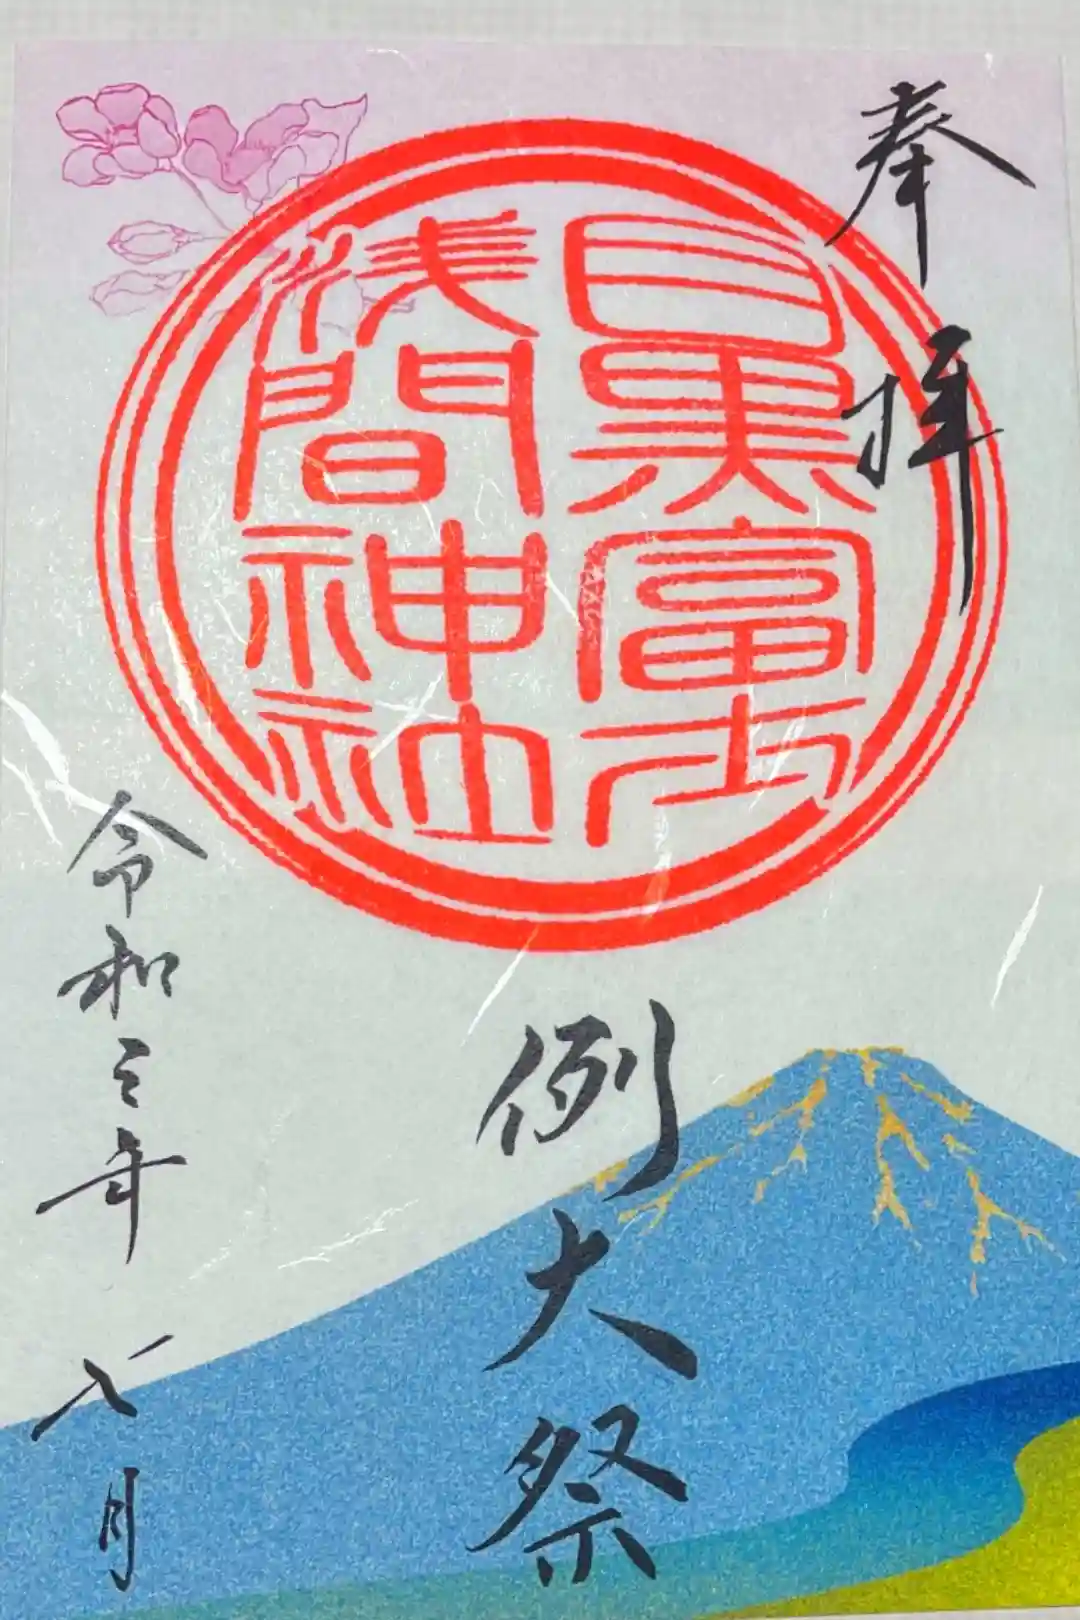 奉拝
目黒富士
浅間神社
例大祭
令和三年七月